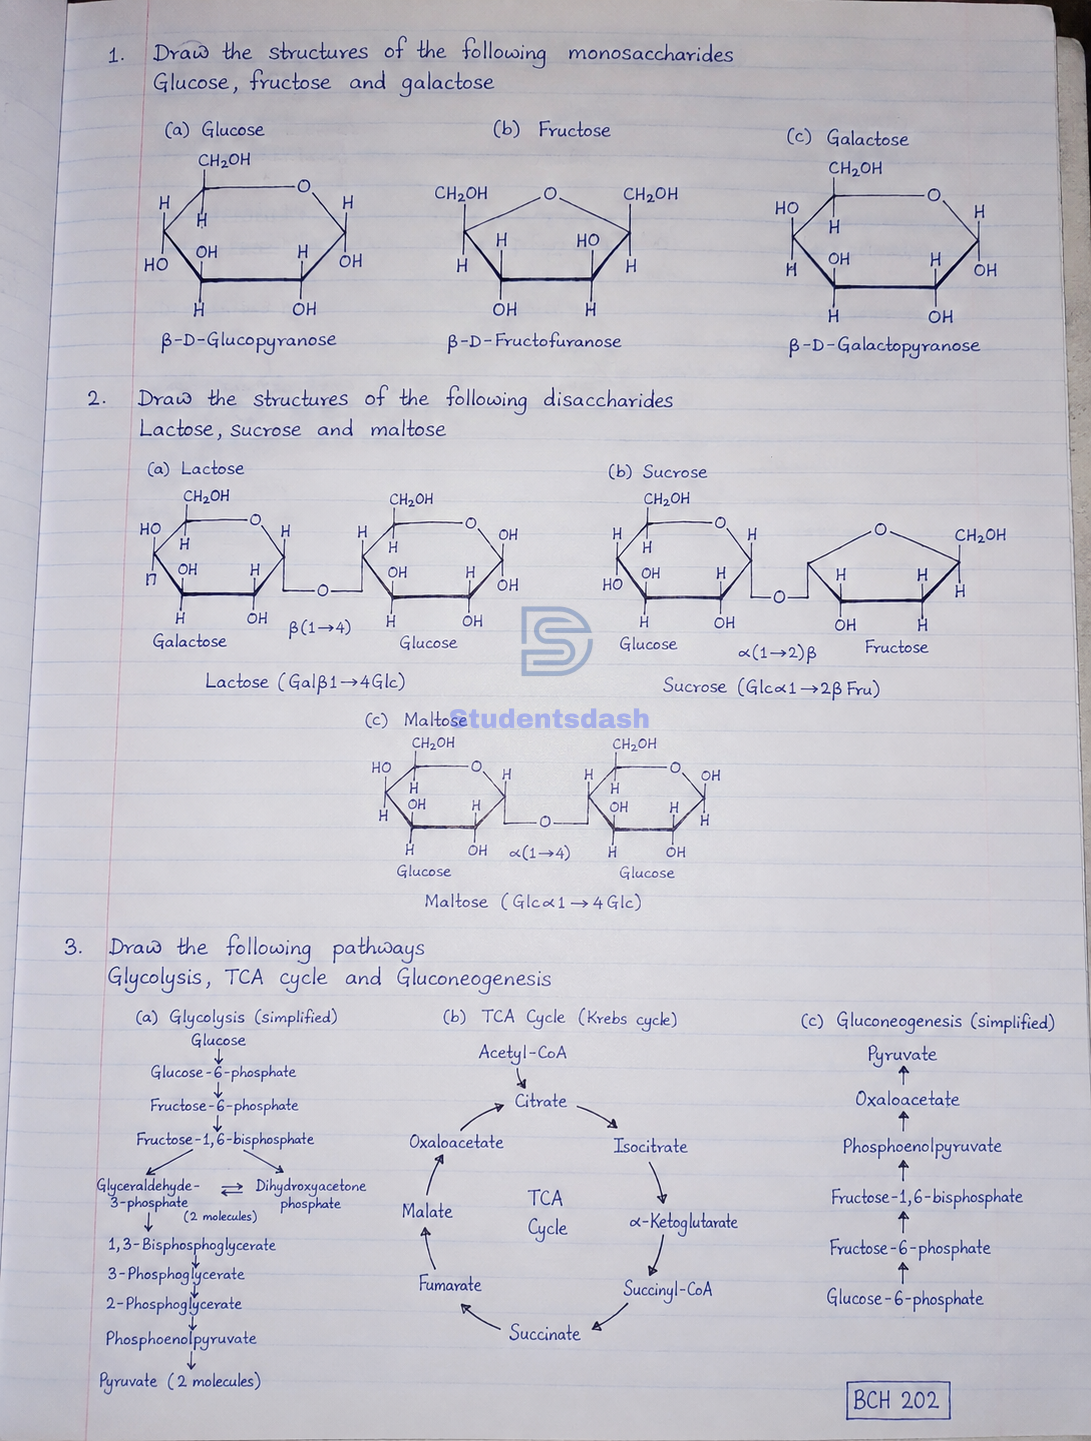 1. Draw the structures of the following monosaccharides
Glucose, fructose and galactose
(a) Glucose
CH₂OH
O
H
H
H
OH
H
HO
OH
H
OH
β-D-Glucopyranose
(b) Fructose
CH₂OH
O
CH₂OH
H
HO
H
H
OH
H
β-D-Fructofuranose
(c) Galactose
CH₂OH
O
HO
H
H
OH
H
H
OH
H
OH
β-D-Galactopyranose
2. Draw the structures of the following disaccharides
Lactose, sucrose and maltose
(a) Lactose
CH₂OH
CH₂OH
O
O
HO
H
H
OH
H
H
OH
H
OH
H
OH
H
OH
H
OH
O
β(1→4)
Galactose
Glucose
Lactose (Galβ1→4Glc)
(b) Sucrose
CH₂OH
O
O
CH₂OH
H
H
H
OH
H
H
H
HO
H
O
H
OH
OH
H
Glucose
α(1→2)β
Fructose
Sucrose (Glcα1→2β Fru)
Studentsdash
(c) Maltose
CH₂OH
CH₂OH
HO
O
H
H
O
OH
H
H
OH
H
OH
H
H
H
O
H
OH
α(1→4)
H
OH
Glucose
Glucose
Maltose (Glcα1→4Glc)
3. Draw the following pathways
Glycolysis, TCA cycle and Gluconeogenesis
(a) Glycolysis (simplified)
Glucose
↓
Glucose-6-phosphate
↓
Fructose-6-phosphate
↓
Fructose-1,6-bisphosphate
Glyceraldehyde-
3-phosphate
⇌
Dihydroxyacetone
phosphate
(2 molecules)
↓
1,3-Bisphosphoglycerate
↓
3-Phosphoglycerate
↓
2-Phosphoglycerate
↓
Phosphoenolpyruvate
↓
Pyruvate (2 molecules)
(b) TCA Cycle (Krebs cycle)
Acetyl-CoA
Citrate
Isocitrate
α-Ketoglutarate
Succinyl-CoA
Succinate
Fumarate
Malate
Oxaloacetate
TCA
Cycle
(c) Gluconeogenesis (simplified)
Pyruvate
↑
Oxaloacetate
↑
Phosphoenolpyruvate
↑
Fructose-1,6-bisphosphate
↑
Fructose-6-phosphate
↑
Glucose-6-phosphate
BCH 202